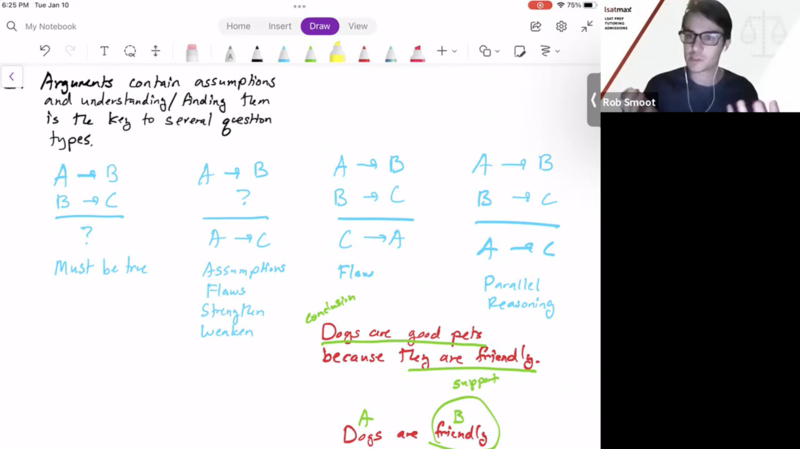 6:25 PM Tue Jan 10
75%
My Notebook
Home Insert Draw View
lsatmax
LSAT PREP
TUTORING
ADMISSIONS
Rob Smoot
Arguments contain assumptions
and understanding/finding them
is the key to several question
types.
A → B
B → C
?
Must be true
A → B
?
A → C
Assumptions
Flaws
Strengthen
Weaken
A → B
B → C
C → A
Flaw
A → B
B → C
A → C
Parallel
Reasoning
conclusion
Dogs are good pets
because they are friendly.
support
A B
Dogs are friendly